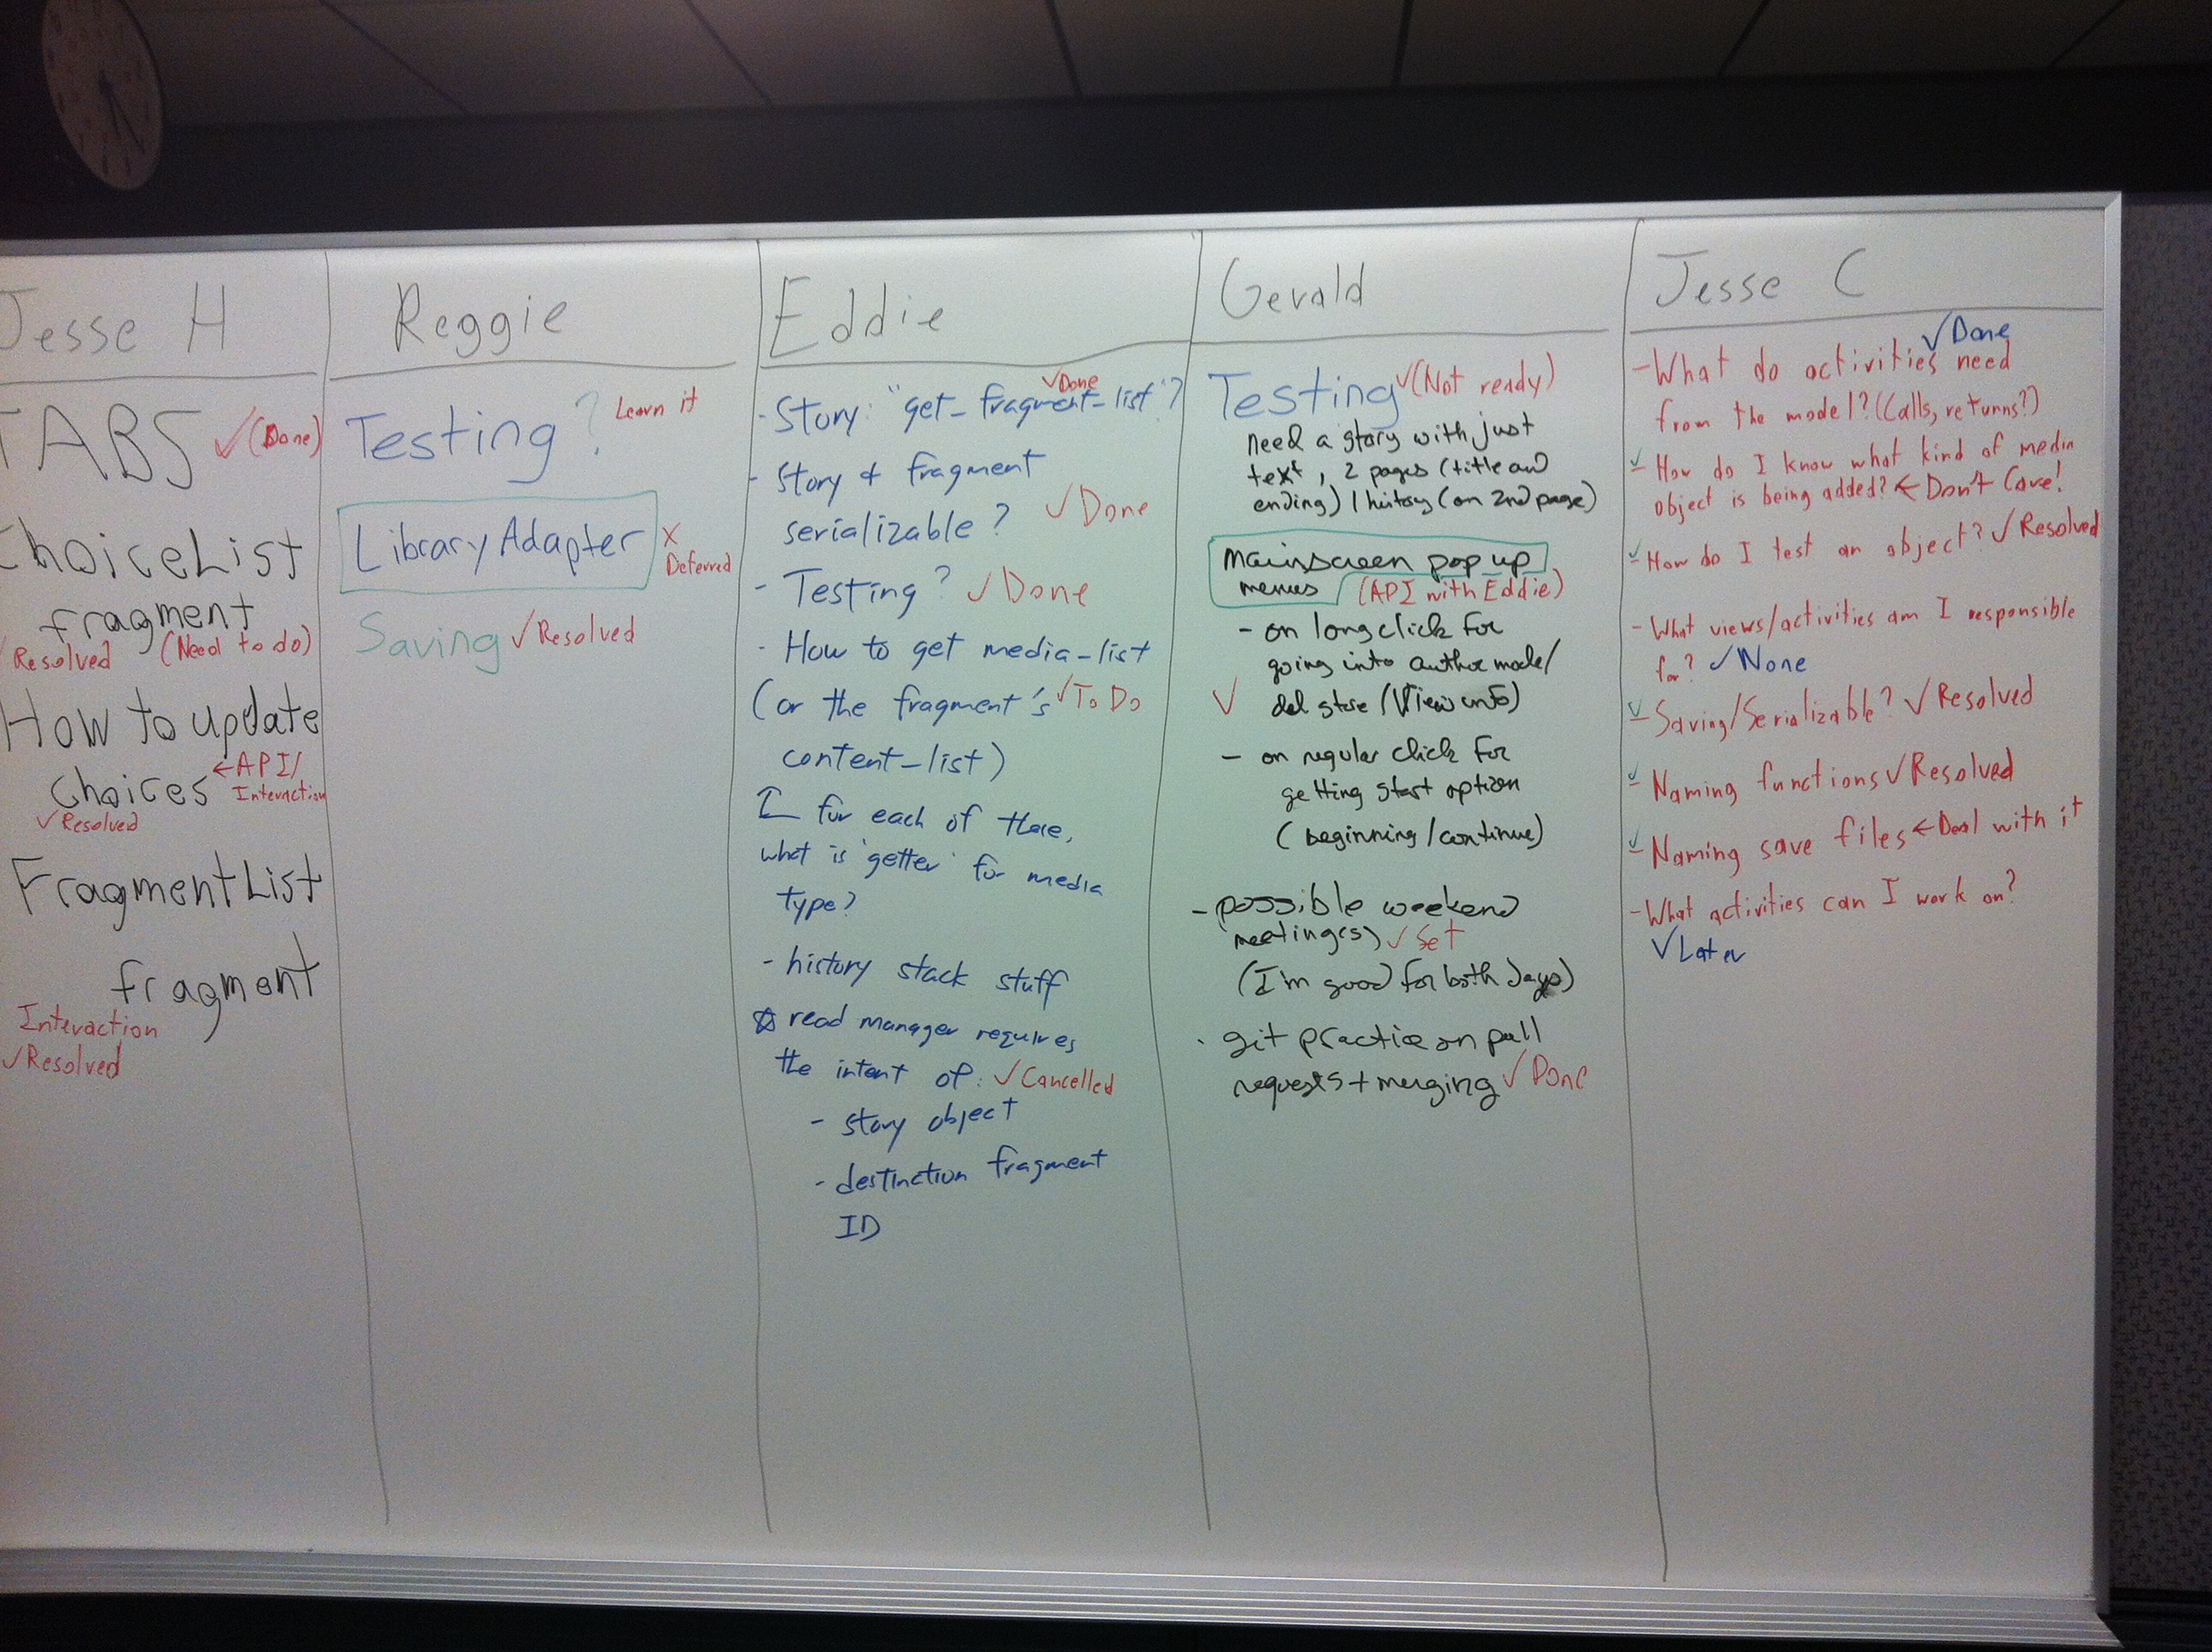 Jesse H
TABS ✓(Done)
ChoiceList
fragment
Resolved (Need to do)
How to update
choices ←API/
Interaction
✓Resolved
FragmentList
fragment
Interaction
✓Resolved
Reggie
Testing? Learn it
LibraryAdapter X
Deferred
Saving ✓Resolved
Eddie
✓Done
- Story: "get_fragment_list"?
- Story & fragment
serializable? ✓Done
- Testing? ✓Done
- How to get media_list
(or the fragment's ✓To Do
content_list)
for each of these,
what is 'getter' for media
type?
- history stack stuff
☆ read manager requires
the intent of: ✓Cancelled
- story object
- destinction fragment
ID
Gerald
Testing ✓(Not ready)
need a story with just
text, 2 pages (title and
ending) 1 history (on 2nd page)
Mainscreen pop up
menus (API with Eddie)
- on long click for
going into author mode/
✓ del store/(View info)
- on regular click for
getting start option
(beginning/continue)
- possible weekend
meeting(s) ✓Set
(I'm good for both days)
- git practice on pull
requests + merging ✓Done
Jesse C
✓Done
- What do activities need
from the model? (Calls, returns?)
✓- How do I know what kind of media
object is being added? ← Don't Care!
✓- How do I test an object? ✓Resolved
- What views/activities am I responsible
for? ✓None
✓- Saving/Serializable? ✓Resolved
✓- Naming functions ✓Resolved
✓- Naming save files ← Deal with it
- What activities can I work on?
✓Later